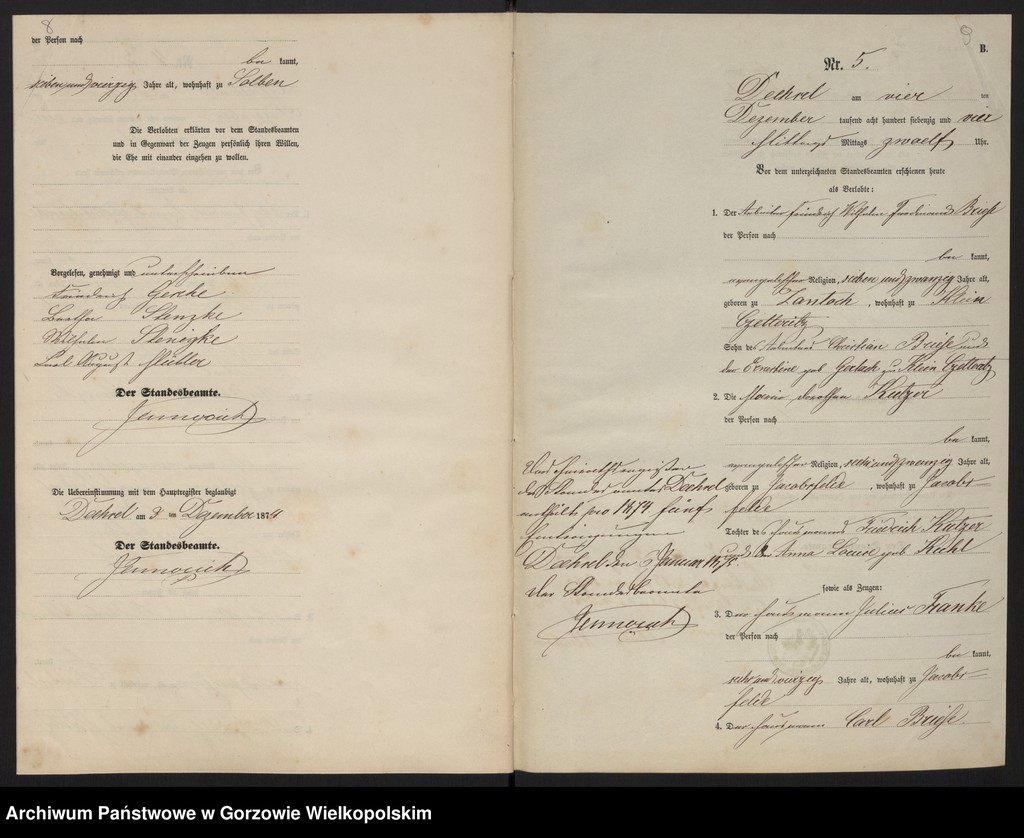 8
der Person nach
be kannt,
siebenundvierzig Jahre alt, wohnhaft zu Solben
Die Verlobten erklärten vor dem Standesbeamten
und in Gegenwart der Zeugen persönlich ihren Willen,
die Ehe mit einander eingehen zu wollen.
Vorgelesen, genehmigt und unterschrieben
Friedrich Gerche
Stenzke
Wilhelm Stenigke
Carl August Müller
Der Standesbeamte.
Die Uebereinstimmung mit dem Hauptregister beglaubigt
Dechsel am 3 ten Dezember 1874
Der Standesbeamte.
9
B.
Nr. 5.
Dechsel am vier ten
Dezember tausend acht hundert siebenzig und vier
Mittags Mittags zwoelf Uhr.
Vor dem unterzeichneten Standesbeamten erschienen heute
als Verlobte:
1. Der Arbeiter Friedrich Wilhelm Ferdinand Briese
der Person nach
be kannt,
evangelischer Religion, sieben und zwanzig Jahre alt,
geboren zu Zantoch, wohnhaft zu Klein
Czettritz
Sohn des Arbeiters Christian Briese und
der Ernestine geb Gerlach zu Klein Czettritz
2. Die Marie Dorothea Kutzer
der Person nach
be kannt,
evangelischer Religion, sechsundzwanzig Jahre alt,
geboren zu Jacobsfelde, wohnhaft zu Jacobs=
felde
Tochter des Hausmanns Friedrich Kutzer
und der Anna Louise geb Kuhl
sowie als Zeugen:
3. Der Hausmann Julius Franke
der Person nach
be kannt,
sechsundvierzig Jahre alt, wohnhaft zu Jacobs=
felde
4. Der Hausmann Carl Briese
Das Heirathsregister
des Standesamtes Dechsel
enthält pro 1874 fünf
Eintragungen
Dechsel den Januar 1875.
Der Standesbeamte
Archiwum Państwowe w Gorzowie Wielkopolskim